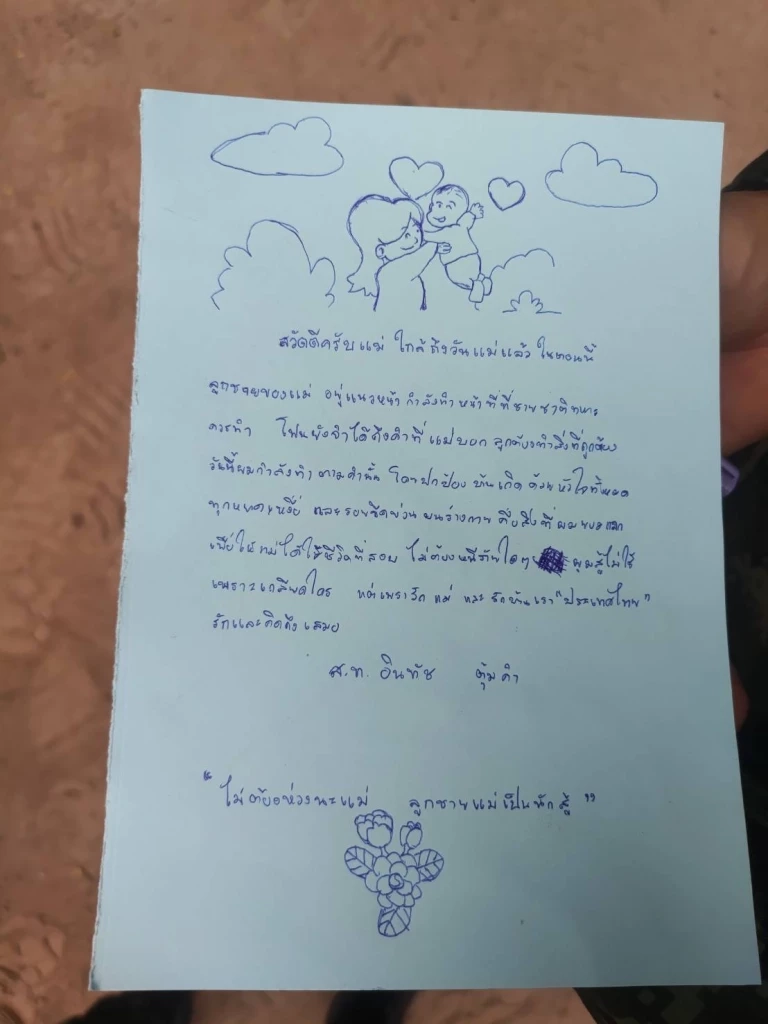 สวัดดีครับแม่ ใกล้ถึงวันแม่แล้ว ในตอนนี้
ลูกชายของแม่ อยู่แนวหน้า กำลังทำหน้าที่ที่ชายชาติทหาร
ควรทำ ยังจำได้ถึงคำที่แม่บอก ลูกต้องทำสิ่งที่ถูกต้อง
วันนี้ผมกำลังทำตามคำนั้น โดยปกป้องบ้านเกิดด้วยหัวใจทั้งหมด
ทุกหยดเหงื่อ และรอยขีดข่วนบนร่างกาย คือสิ่งที่ผมยอมแลก
เพื่อให้แม่ได้ใช้ชีวิตที่สงบ ไม่ต้องหนีภัยใดๆ ผมสู้ไม่ใช่
เพราะเกลียดใคร แต่เพราะรักแม่ และรักบ้านเรา "ประเทศไทย"
รักและคิดถึงเสมอ
ส.ท. อินทัช ตุ้มคำ
"ไม่ต้องห่วงนะแม่ ลูกชายแม่เป็นนักสู้"